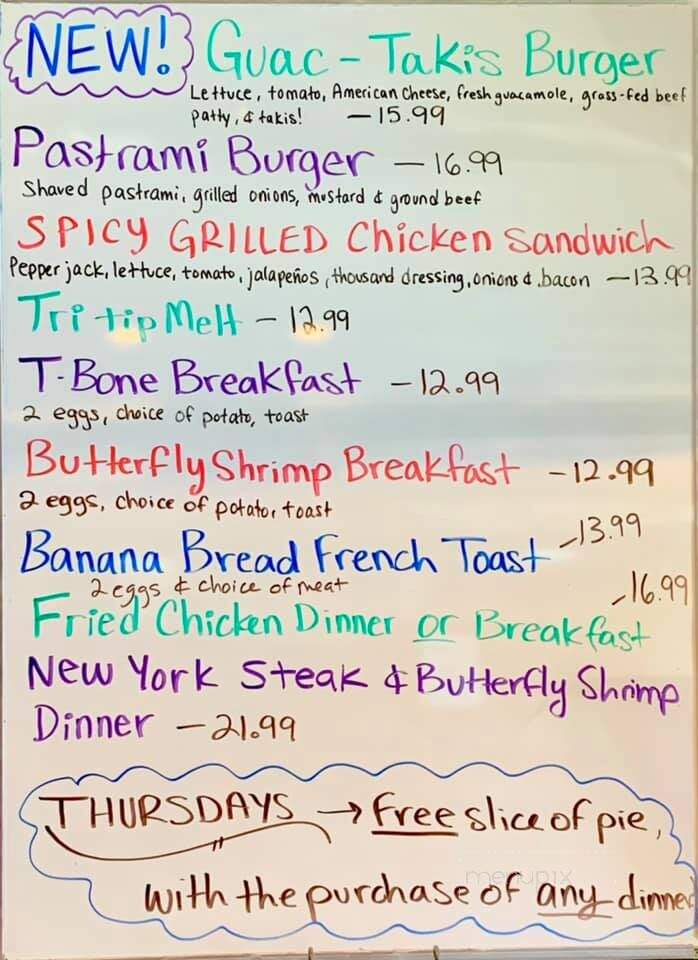 NEW! Guac-Takis Burger
Lettuce, tomato, American Cheese, fresh guacamole, grass-fed beef
patty, & takis! —15.99
Pastrami Burger —16.99
Shaved pastrami, grilled onions, mustard & ground beef
SPICY GRILLED Chicken Sandwich
Pepper jack, lettuce, tomato, jalapeños, thousand dressing, onions & bacon —13.99
Tri tip Melt —12.99
T-Bone Breakfast —12.99
2 eggs, choice of potato, toast
Butterfly Shrimp Breakfast —12.99
2 eggs, choice of potato, toast
Banana Bread French Toast —13.99
2 eggs & choice of meat
Fried Chicken Dinner or Breakfast —16.99
New York Steak & Butterfly Shrimp
Dinner —21.99
THURSDAYS → Free slice of pie,
with the purchase of any dinner
menupix